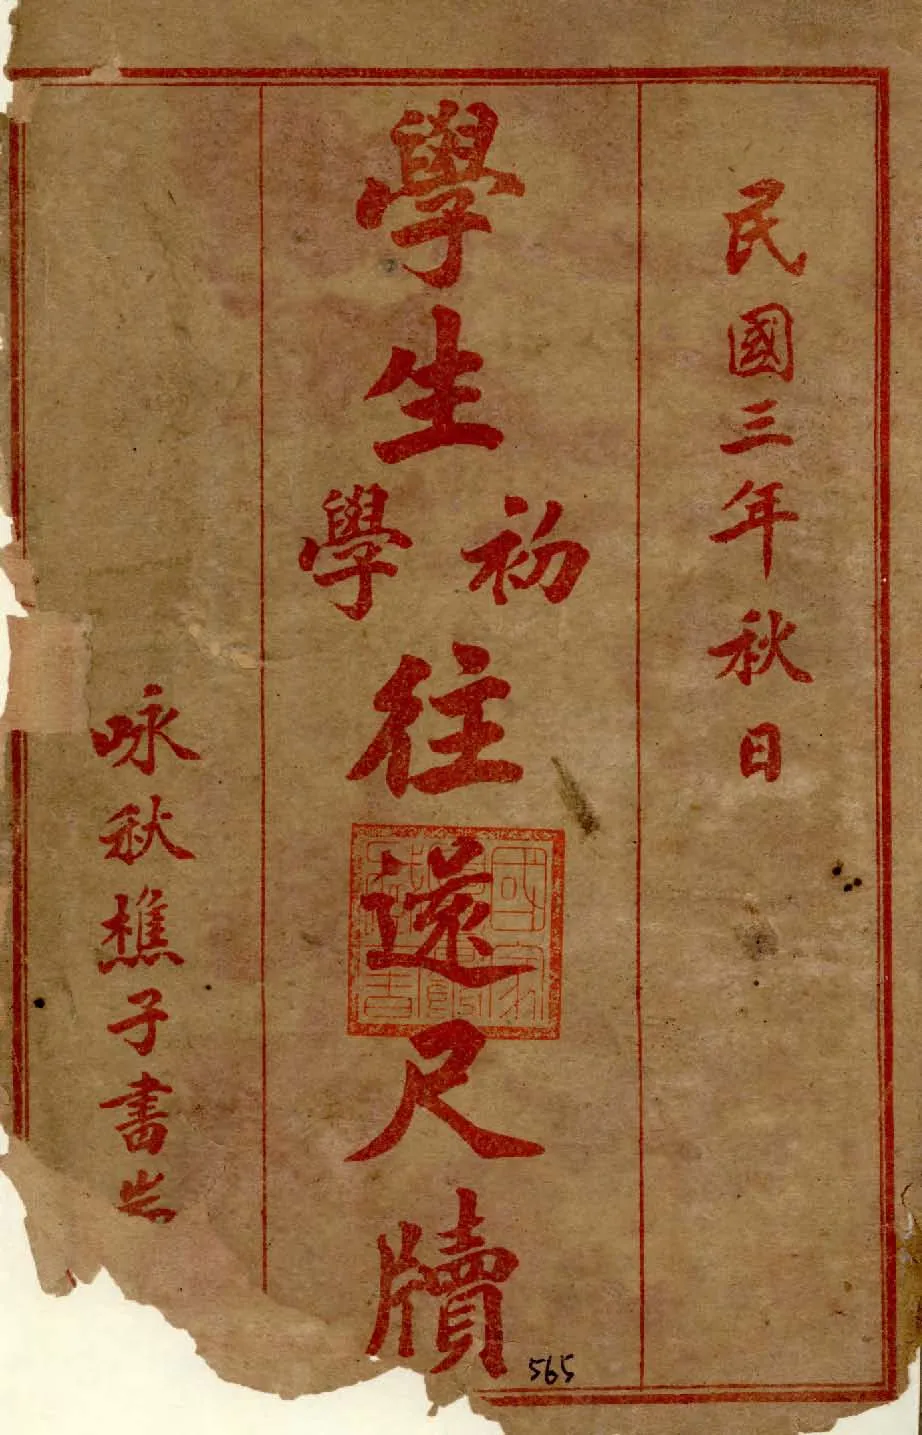 民國三年秋日
學生初學往還尺牘
咏秋樵子書耑
565